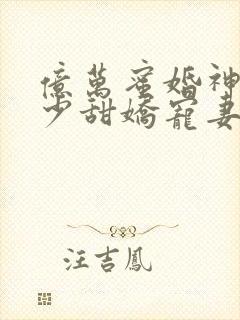 億萬蜜婚神
少甜嬌寵妻
汪吉鳳